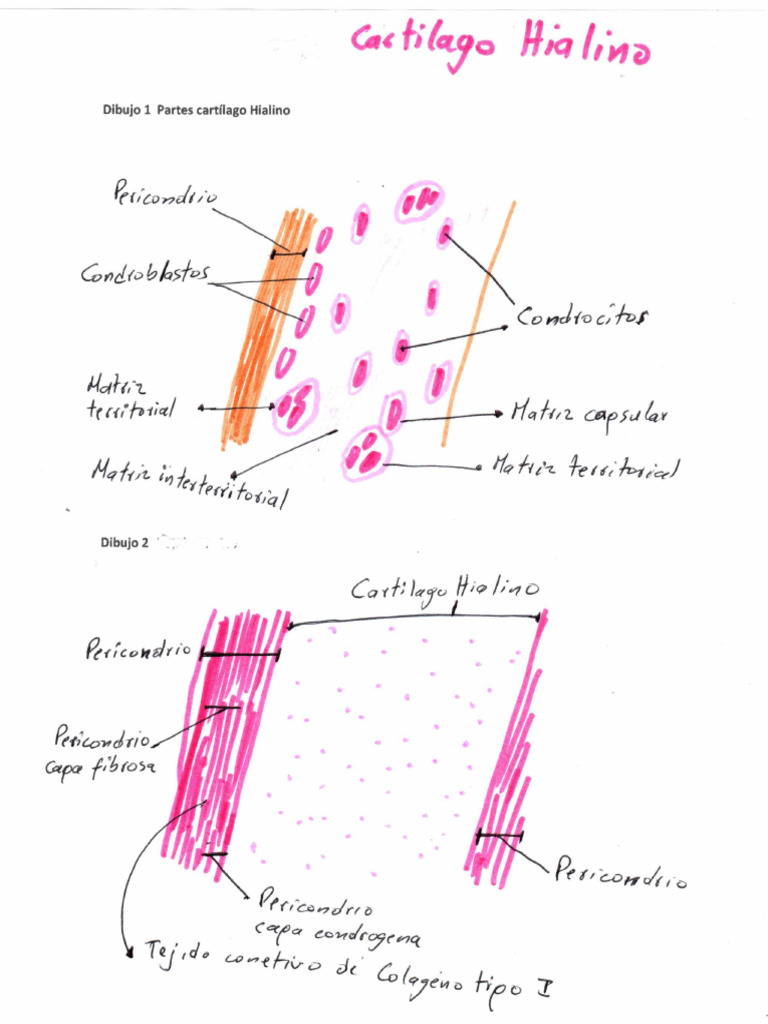 Cartilago Hialino
Dibujo 1 Partes cartílago Hialino
Pericondrio
Condroblastos
Condrocitos
Matriz
territorial
Matriz capsular
Matriz interterritorial
Matriz territorial
Dibujo 2
Cartilago Hialino
Pericondrio
Pericondrio
capa fibrosa
Pericondrio
Pericondrio
capa condrogena
Tejido conetivo de Colageno tipo I